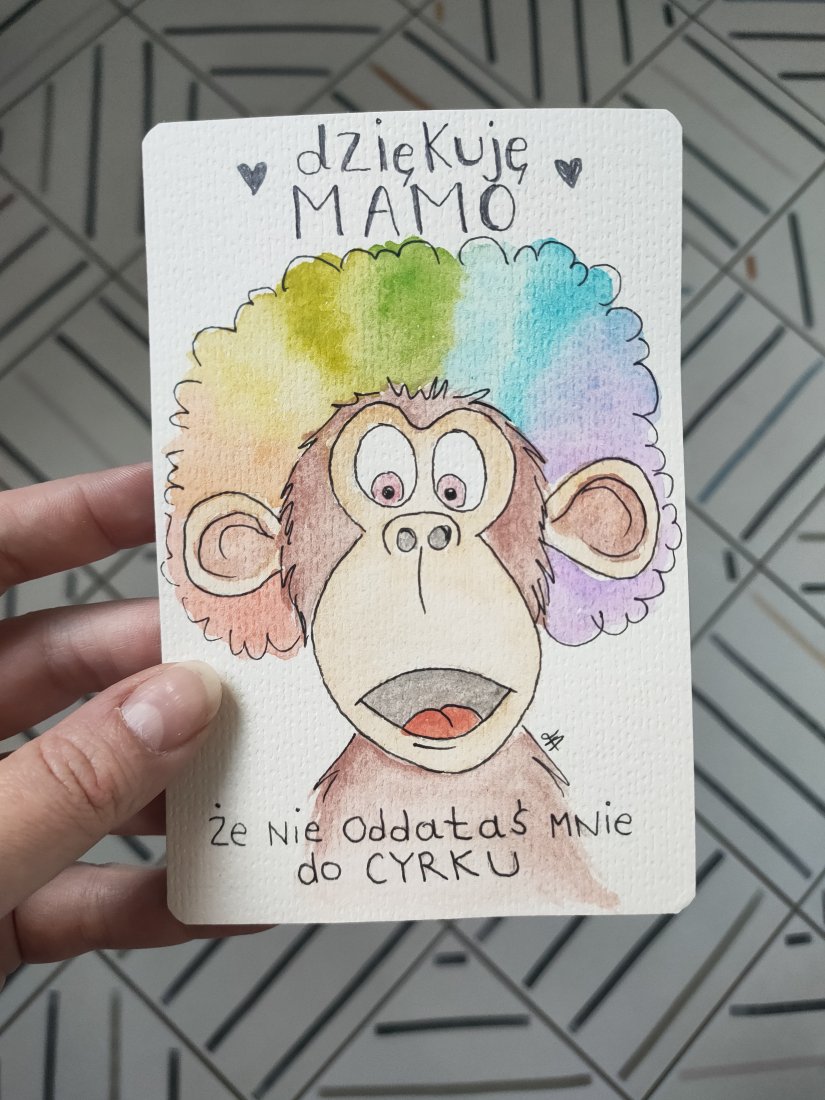 dziękuję
MAMO
że nie oddałaś mnie
do CYRKU